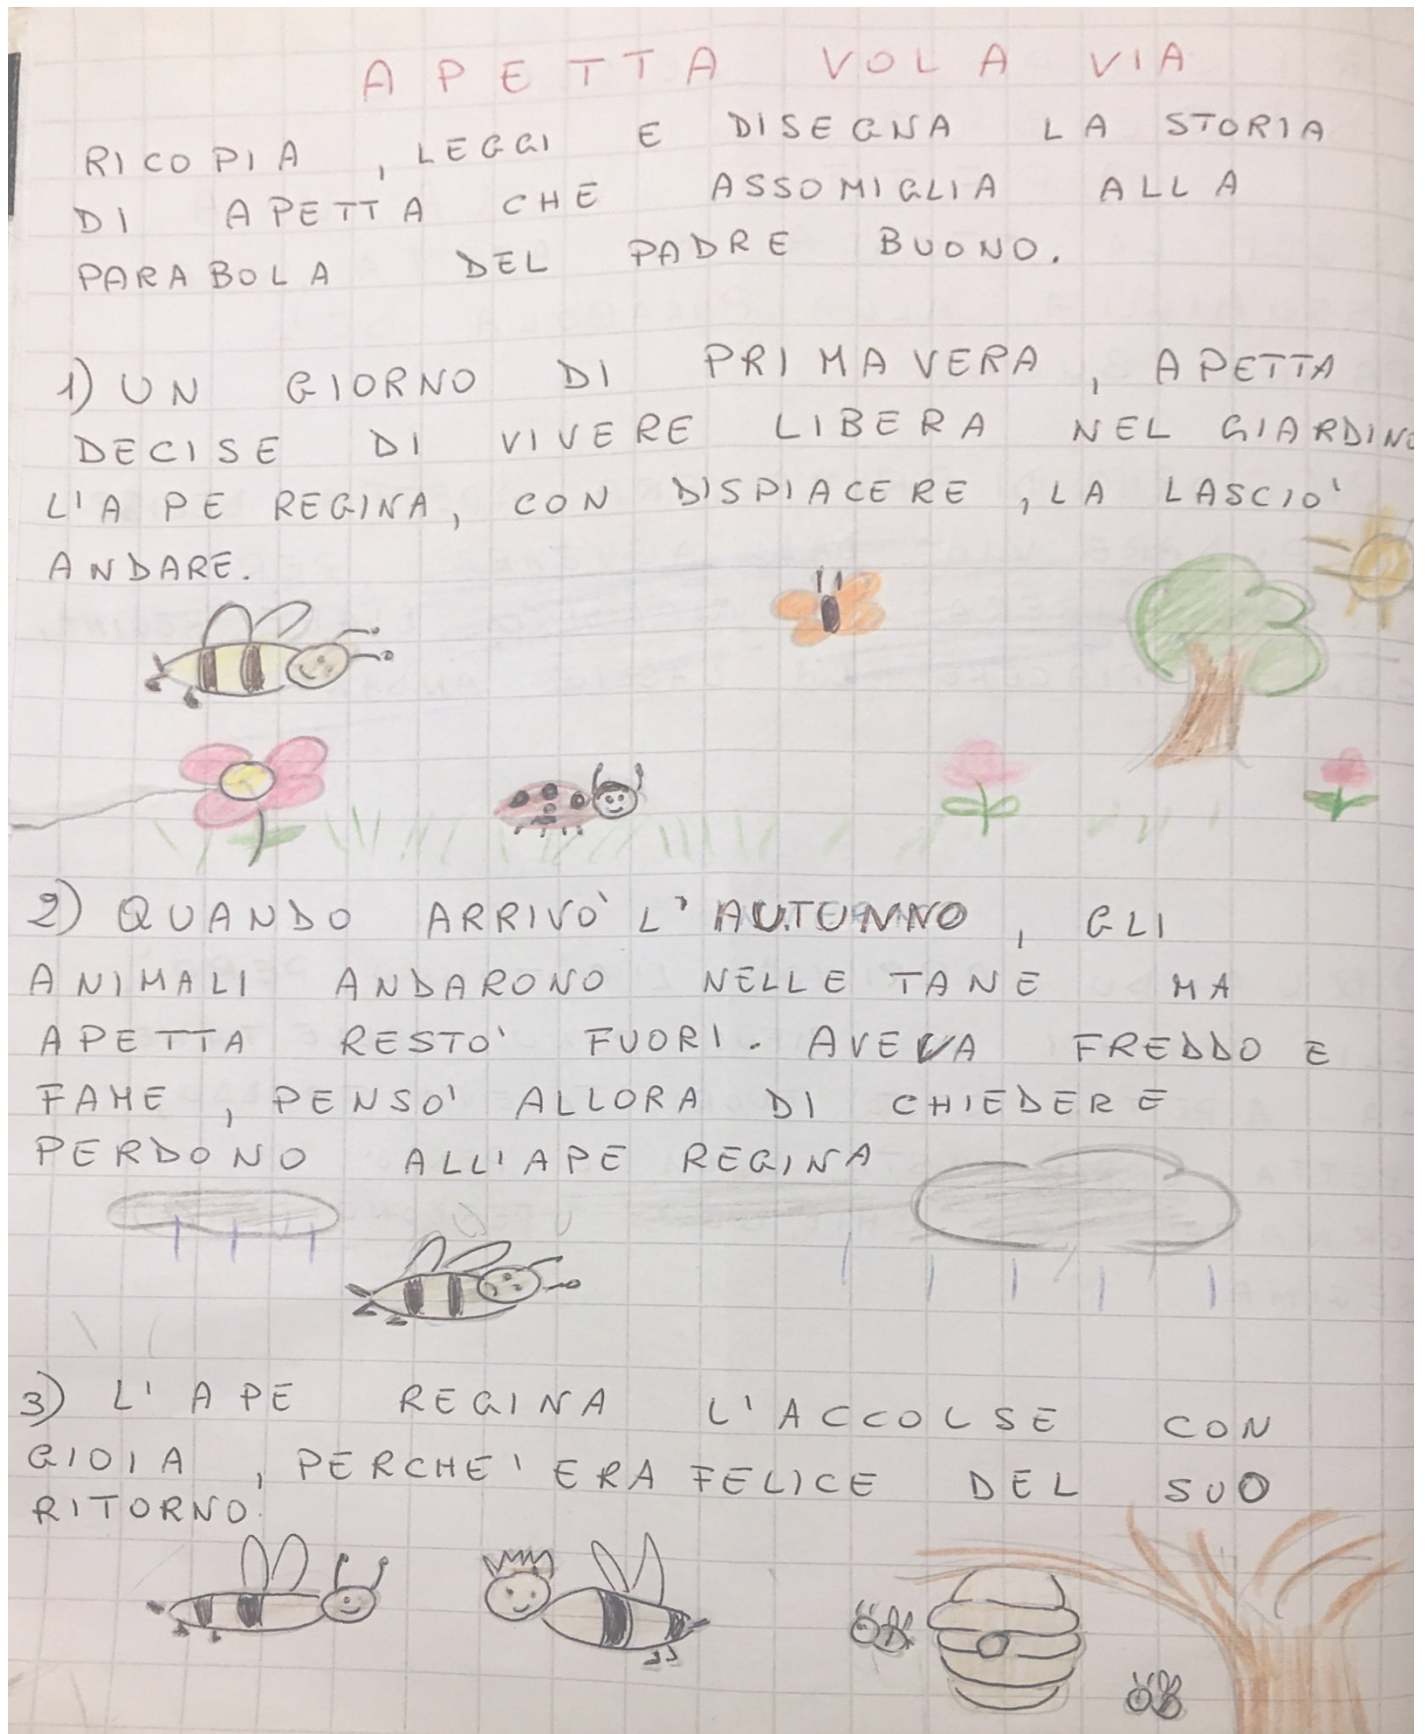 APETTA VOLA VIA
RICOPIA , LEGGI E DISEGNA LA STORIA
DI APETTA CHE ASSOMIGLIA ALLA
PARABOLA DEL PADRE BUONO.
1) UN GIORNO DI PRIMAVERA , APETTA
DECISE DI VIVERE LIBERA NEL GIARDINO
L'APE REGINA, CON DISPIACERE , LA LASCIO'
ANDARE.
2) QUANDO ARRIVO' L'AUTUNNO , GLI
ANIMALI ANDARONO NELLE TANE MA
APETTA RESTO' FUORI. AVEVA FREDDO E
FAME , PENSO' ALLORA DI CHIEDERE
PERDONO ALL'APE REGINA
3) L'APE REGINA L'ACCOLSE CON
GIOIA , PERCHE' ERA FELICE DEL SUO
RITORNO.